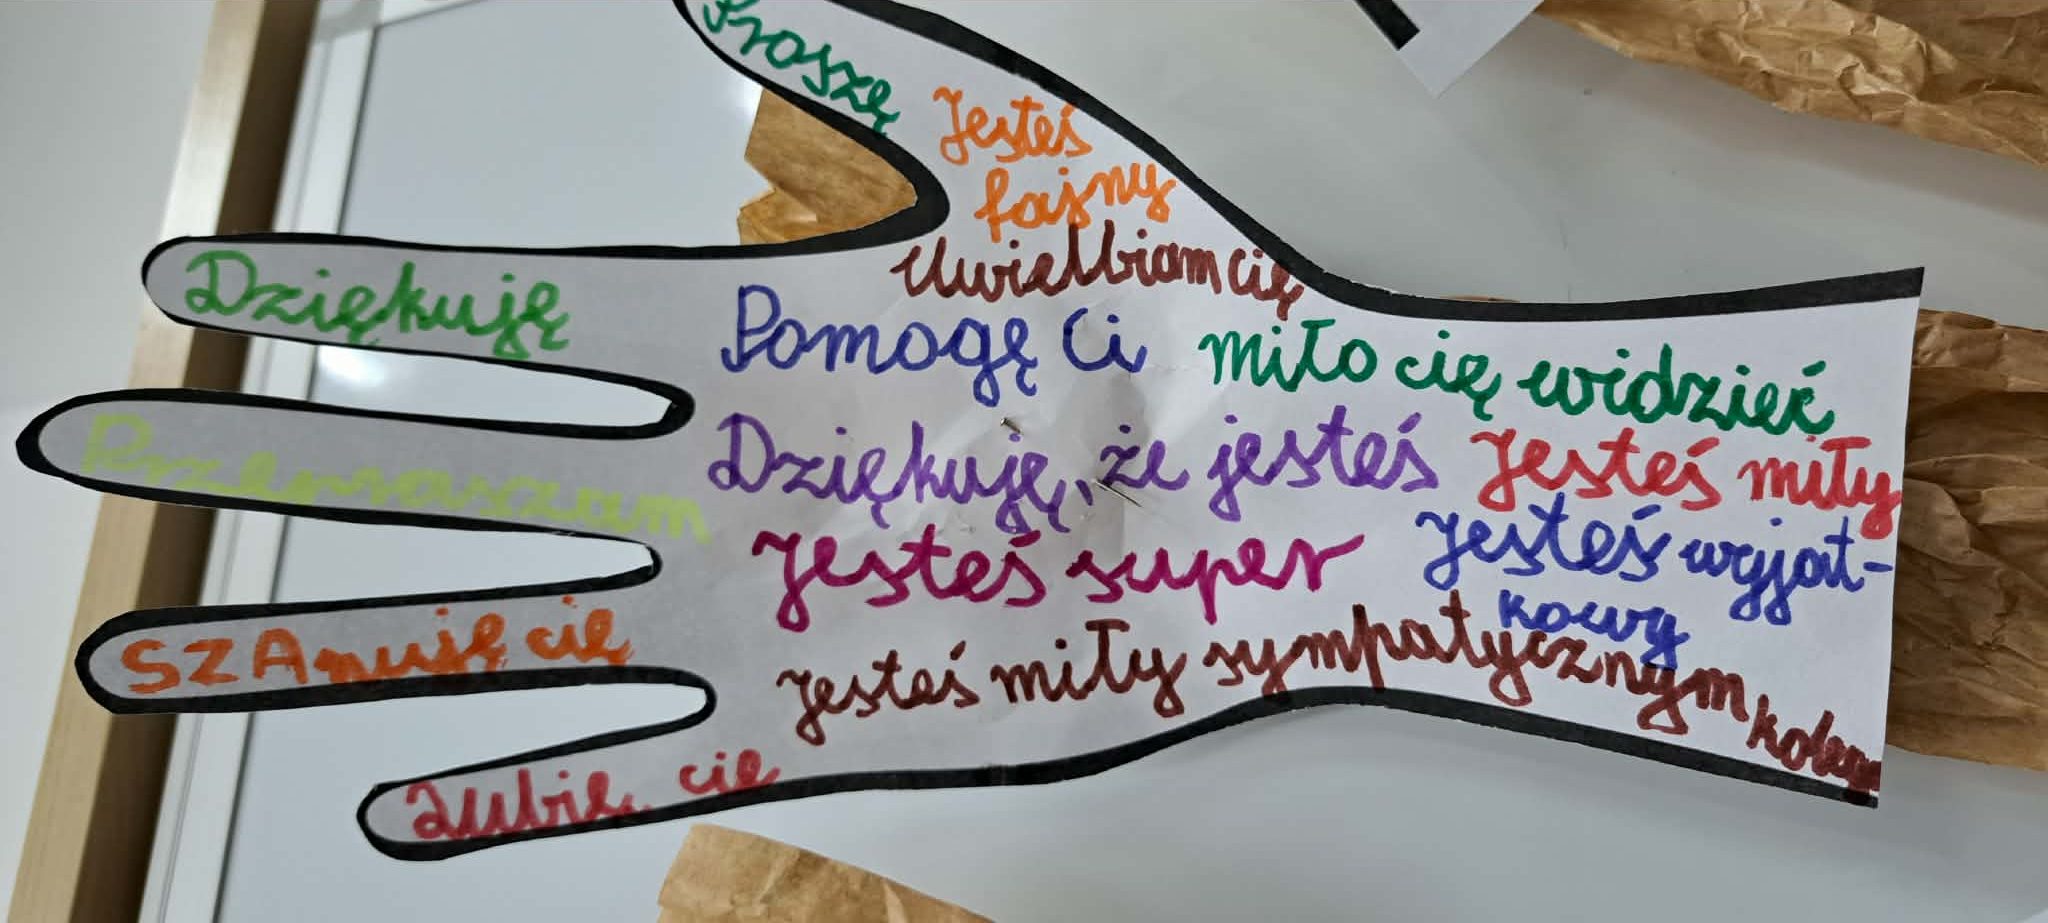 Proszę
Jesteś
fajny
Uwielbiam cię
Dziękuję
Pomogę Ci
miło cię widzieć
Przepraszam
Dziękuję, że jesteś
Jesteś miły
Jesteś super
Jesteś wyjąt-
kowy
SZAnuję cię
Jesteś miły sympatycznym
Lubię cię